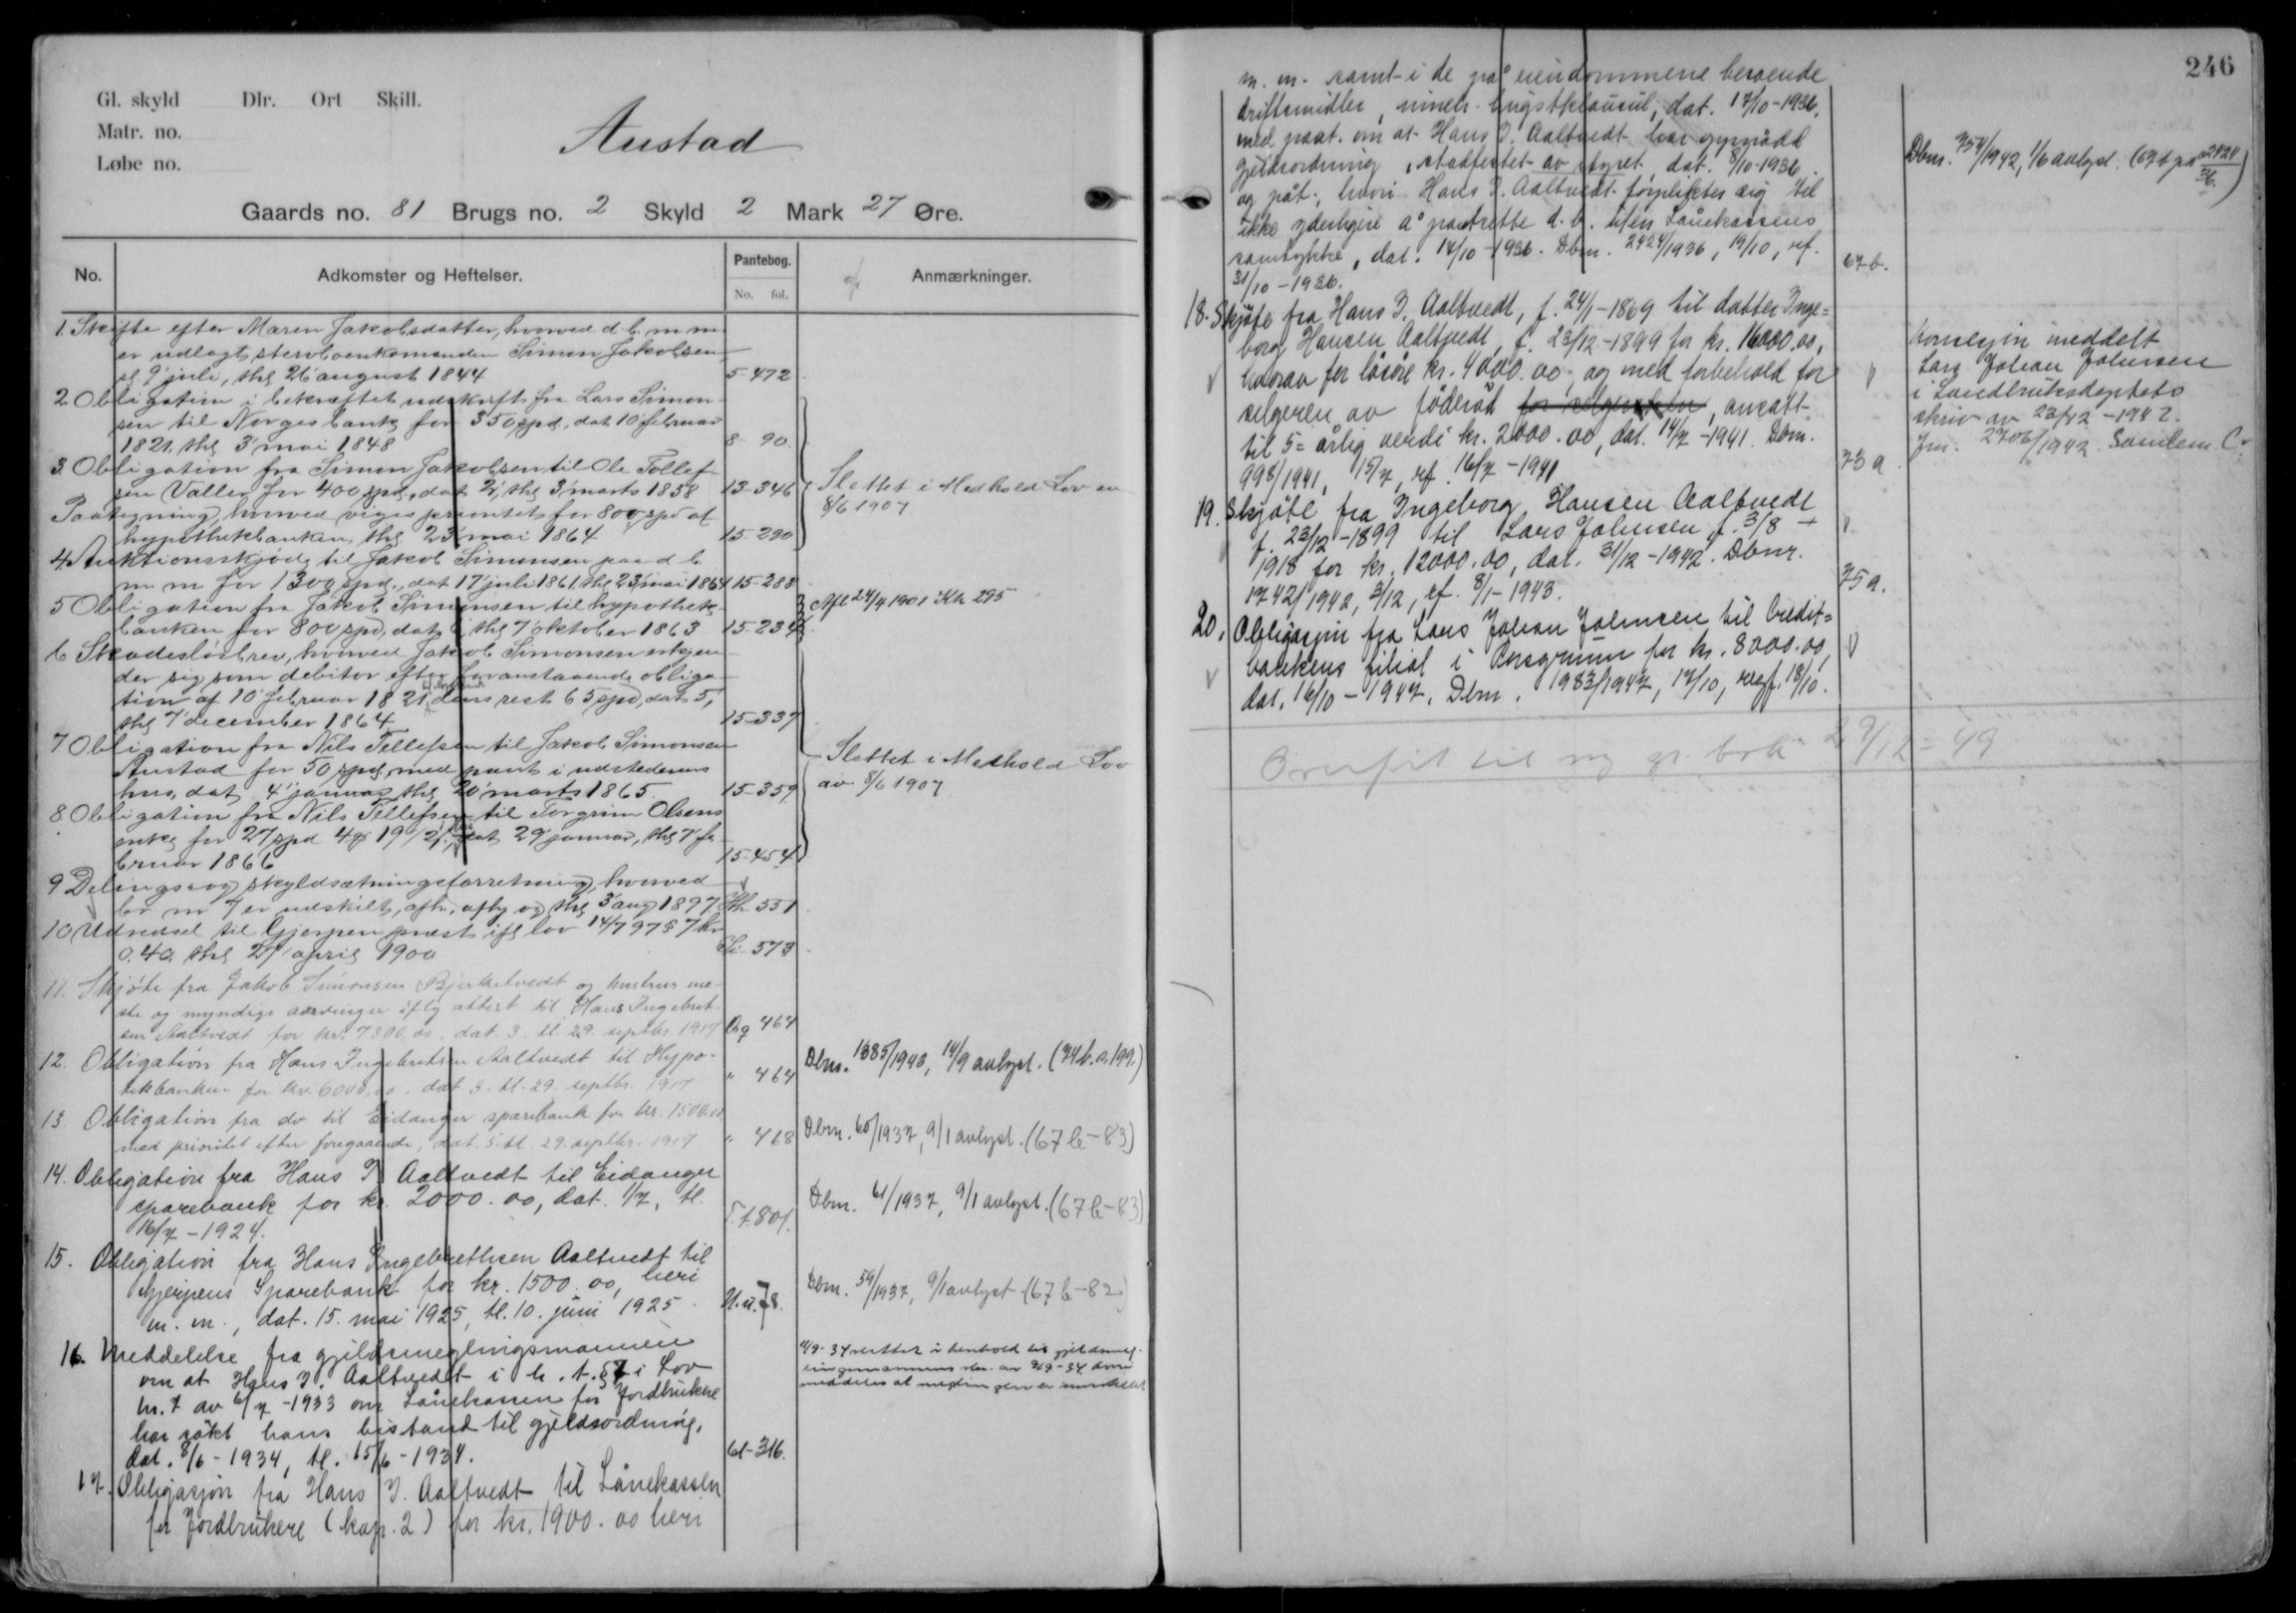 Gl. skyld Dlr. Ort Skill.
Matr. no.
Løbe no.
Austad
Gaards no. 81 Brugs no. 2 Skyld 2 Mark 27 Øre.
No. Adkomster og Heftelser. Pantebog. No. fol. Anmærkninger.
1. Skifte efter Maren Jakobsdatter, hvorved d. b. m m
er udlagt stervboenkemanden Simon Jakobsen
sl. 9 juli, thg 26 august 1844 5-472
2 Obligation i bekræftet udskrift fra Lars Simon-
sen til Norges bank for 350 spd, dat 10 februar
1821, thg 3 mai 1848 8-90.
3. Obligation fra Simon Jakobsen til Ole Tollef-
sen Valler for 400 spd., dat 2, thg 3 marts 1858 13-346
Paategning, hvorved viges prioritet for 800 spd af
hypothekbanken, thg 23 mai 1864 15-290
Slettet i Medhold Lov av
8/6 1907
4 Auktionsskjøde til Jakob Simonsen paa d b
m m for 1300 spd., dat 17 juli 1861, thg 23 mai 1864 15-288
5 Obligation fra Jakob Simonsen til hypothek-
banken for 800 spd, dat 6, thg 7 oktober 1863 15-234
Afl 24/4 1901 Hh 295
6 Skadesløsbrev, hvorved Jakob Simonsen erkjen-
der sig som debitor efter foranstaaende obliga-
tion af 10 februar 1821, dens rest 65 spd, dat 5,
thg 7 december 1864 15-337
7 Obligation fra Nils Tellefsen til Jakob Simonsen
Austad for 50 spd, med pant i udstederens
hus, dat 4 januar, thg 20 marts 1865 15-359
Slettet i Medhold Lov
av 8/6 1907
8 Obligation fra Nils Tellefsen til Torgrim Olsens
enke for 27 spd 4 19 1/2, dat 29 januar, thg 7 fe
bruar 1866 15-454
9 Delings- og skyldsætningsforretning, hvorved
br nr 4 er udskilt, afh., afhg og thg 3 aug 1897 551
10 Udredsel til Gjerpen præst ifl lov 14/7 97 § 7 kr
0.40. thg 27 april 1900 573
11. Skjøte fra Jakob Simonsen Bjerketvedt og hustrus
og myndige arvinger iflg attest til Hans Ingebret-
sen Aaltvedt for kr. 7300,00. dat. 3. tl. 29. septbr. 1917 464
12. Obligation fra Hans Ingebretsen Aaltvedt til Hypo-
tekbanken for kr. 6000,00. dat 3. tl. 29. septbr. 1917 " 464
Dbnr. 1385/1943, 14/9 avlyst. (74 b. s. 199.)
13. Obligation fra do til Eidanger sparebank for kr. 1500.00
med prioritet efter foregaaende, dat. 5. tl. 29. septbr. 1917 " 468
Dbnr. 60/1937, 9/1 avlyst. (67 b-83)
14. Obligation fra Hans I. Aaltvedt til Eidanger
sparebank for kr. 2000.00, dat. 1/7, tl.
16/7-1924. T.f.801.
Dbnr. 61/1937, 9/1 avlyst. (67 b-83)
15. Obligation fra Hans Ingebrethsen Aaltvedt til
Gjerpens Sparebank for kr. 1500.00, heri
m. m., dat. 15. mai 1925, tl. 10. juni 1925 78.
Dbnr. 59/1937, 9/1 avlyst (67 b-82)
16. Meddelelse fra gjeldsmeglingsmannen
om at Hans I. Aaltvedt i h. t. § 7 i Lov
nr. 7 av 6/7-1933 om Lånekassen for Jordbrukere
har søkt hans bistand til gjeldsordning,
dat. 8/6-1934, tl. 15/6-1934. 61-316.
slettet i henhold til gjeldsmeg-
lingsmannens skr. av
meddeles at meglingen er
17. Obligasjon fra Hans I. Aaltvedt til Lånekassen
for Jordbrukere (kap. 2) for kr. 1900.00 heri
246
m. m. samt i de på eiendommene beroende
driftsmidler, dat. 17/10-1936,
med paat. om at Hans I. Aaltvedt har oppnådd
gjeldsordning, stadfestet av styret, dat. 8/10-1936
og påt. hvori Hans I. Aaltvedt forplikter sig til
ikke yderligere å pantsette d. b. uten Lånekassens
samtykke, dat. 14/10-1936. Dbnr. 2424/1936, 19/10, ref.
31/10-1936. 67 b.
Dbnr. 754/1942, 1/6 avlyst. (67 b på 2424/36.)
18. Skjøte fra Hans I. Aaltvedt, f. 24/1-1869 til datter Inge-
borg Hansen Aaltvedt, f. 23/12-1899 for kr. 16000.00,
hvorav for løsøre kr. 4000.00, og med forbehold for
selgeren av føderåd for selgeren, ansatt
til 5-årlig verdi kr. 2000.00, dat. 14/7-1941. Dbnr.
998/1941, 15/7, ref. 16/7-1941 73 a.
Konsesjon meddelt
Lars Johan Johnsen
i Landbruksdeptets
skriv av 23/12-1942.
Jnr. 2706/1942. Samlem. C.
19. Skjøte fra Ingeborg Hansen Aaltvedt
f. 23/12-1899 til Lars Johnsen f. 3/8-
1918 for kr. 12000.00, dat. 31/12-1942. Dbnr.
1742/1942, 31/12, ref. 8/1-1943. 75 a.
20. Obligasjon fra Lars Johan Johnsen til Credit-
bankens filial i Porsgrunn for kr. 8000.00,
dat. 16/10-1947. Dbnr. 1983/1947, 17/10, ref. 18/10.
Overført til ny gr. bok 29/12-49